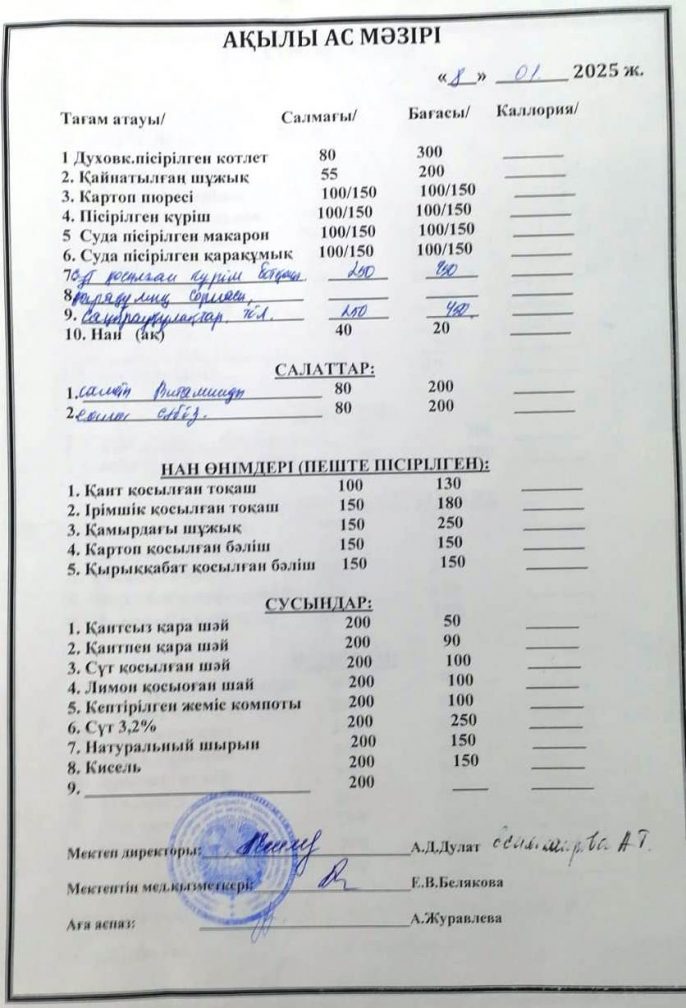 АҚЫЛЫ АС МӘЗІРІ
«8» 01. 2025 ж.
Тағам атауы/ Салмағы/ Бағасы/ Каллория/
1 Духовк.пісірілген котлет 80 300
2. Қайнатылған шұжық 55 200
3. Картоп пюресі 100/150 100/150
4. Пісірілген күріш 100/150 100/150
5 Суда пісірілген макарон 100/150 100/150
6. Суда пісірілген қарақұмық 100/150 100/150
7 Сүт қосылған күріш ботқасы 250
8.
9. 250 450
10. Нан (ақ) 40 20
САЛАТТАР:
1. салат Витаминды 80 200
2 салат сәбіз. 80 200
НАН ӨНІМДЕРІ (ПЕШТЕ ПІСІРІЛГЕН):
1. Қант қосылған тоқаш 100 130
2. Ірімшік қосылған тоқаш 150 180
3. Қамырдағы шұжық 150 250
4. Картоп қосылған бәліш 150 150
5. Қырыққабат қосылған бәліш 150 150
СУСЫНДАР:
1. Қантсыз қара шәй 200 50
2. Қантпен қара шәй 200 90
3. Сүт қосылған шәй 200 100
4. Лимон қосыоған шай 200 100
5. Кептірілген жеміс компоты 200 100
6. Сүт 3,2% 200 250
7. Натуральный шырын 200 150
8. Кисель 200 150
9. 200
Мектеп директоры: А.Д.Дулат
Мектептің мед.қызметкері: Е.В.Белякова
Аға аспаз: А.Журавлева